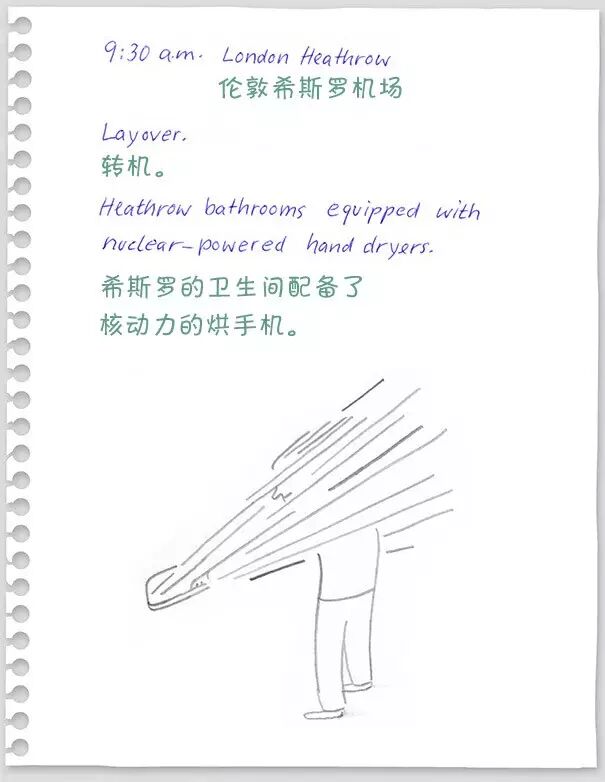 9:30 a.m. London Heathrow
伦敦希斯罗机场
Layover.
转机。
Heathrow bathrooms equipped with
nuclear-powered hand dryers.
希斯罗的卫生间配备了
核动力的烘手机。